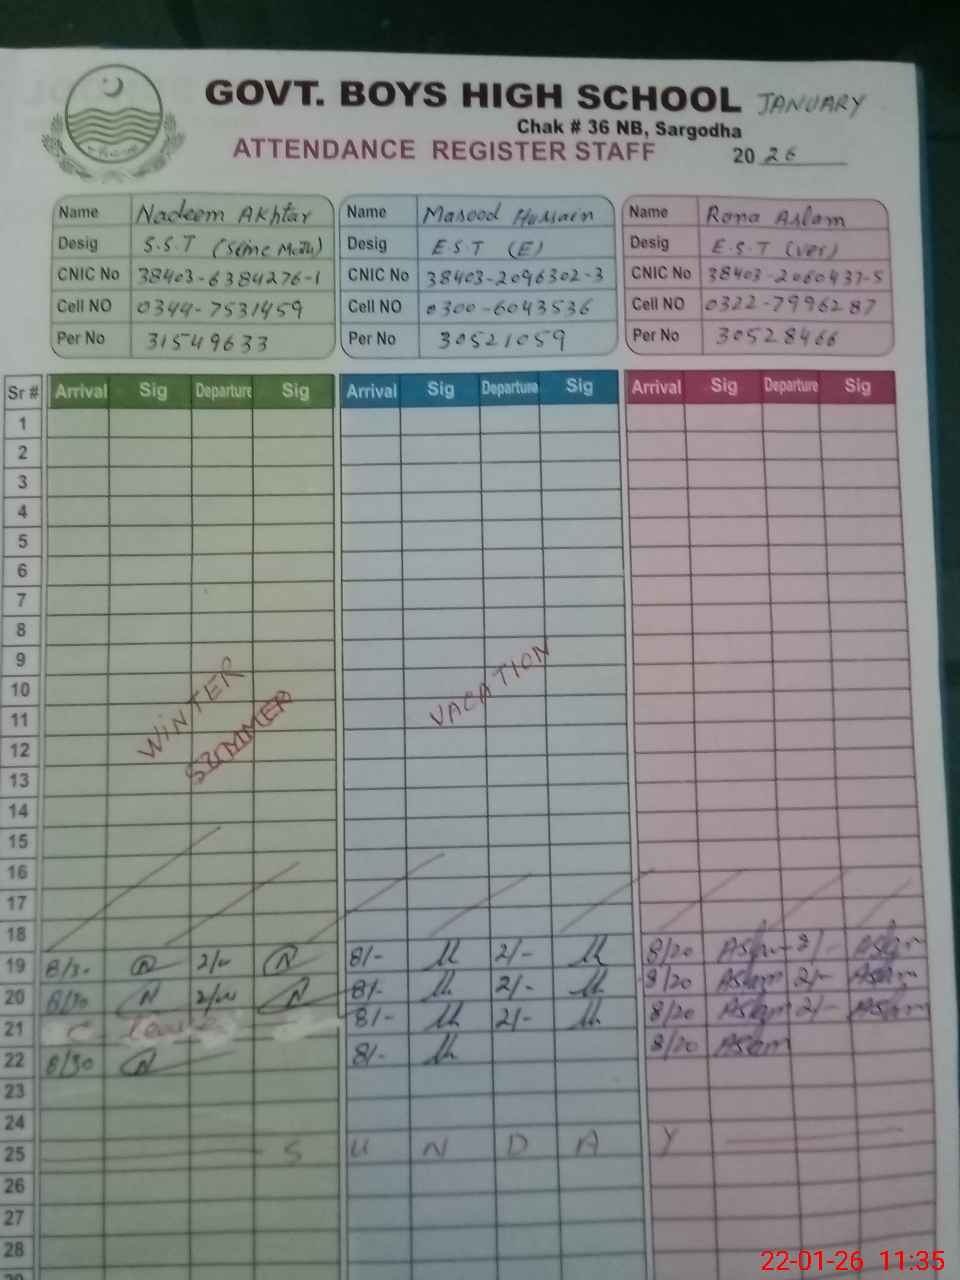 GOVT. BOYS HIGH SCHOOL JANUARY
Chak # 36 NB, Sargodha
ATTENDANCE REGISTER STAFF 20 26
Name Nadeem Akhtar Name Masood Hussain Name Rana Aslam
Desig S.S.T Desig E.S.T (E) Desig E.S.T (Ver)
CNIC No 38403-6384276-1 CNIC No 38403-2096302-3 CNIC No 38403-2060437-5
Cell NO 0344-7531459 Cell NO 0300-6043536 Cell NO 0322-7996287
Per No 31549633 Per No 30521059 Per No 30528466
Sr # Arrival Sig Departure Sig Arrival Sig Departure Sig Arrival Sig Departure Sig
1
2
3
4
5
6
7
8
9
10
11
12
13
14
15
16
17
18
WINTER VACATION
SUMMER
19 8/30 2/- 8/- 2/- 8/20 Aslam 2/- Aslam
20 8/30 2/- 8/- 2/- 8/20 Aslam 2/- Aslam
21 C Leave 8/- 2/- 8/20 Aslam 2/- Aslam
22 8/30 8/- 8/20 Aslam
23
24
25 S U N D A Y
26
27
28
22-01-26 11:35